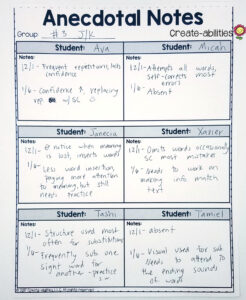 Anecdotal Notes
Create-abilities
Group #3 J/K
Student: Ava
Notes:
12/1 - Frequent repetitions, lacks
confidence
1/6 - Confidence ↑, replacing
rep w/ SC
Student: Micah
Notes:
12/1 - Attempts all words,
self-corrects most
errors
1/6 - Absent
Student: Janecia
Notes:
12/1 - notice when meaning
is lost, inserts words
1/6 - Less word insertion,
paying more attention
to meaning, but still
needs practice
Student: Xavier
Notes:
12/1 - Omits words occasionally,
SC most mistakes
1/6 - Needs to work on
making info match
text
Student: Tashi
Notes:
12/1 - Structure used most
often for substitutions
1/6 - Frequently subs one
sight word for
another - practice
Student: Tamiel
Notes:
12/1 - absent
1/6 - Visual used for sub
Needs to attend to
the ending sounds
of word